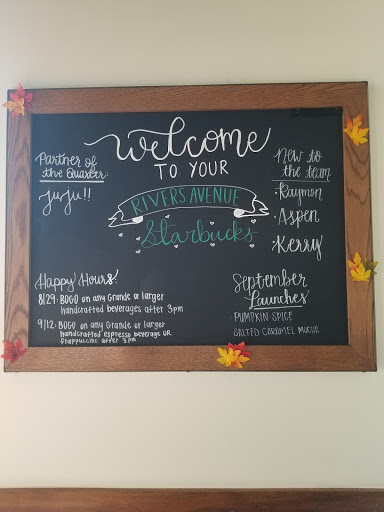 Welcome
TO YOUR
RIVERS AVENUE
Starbucks
Partner of
the Quarter:
JuJu!!
New to
the team
·Raymon
·Aspen
·Kerry
Happy Hours:
8/29: BOGO on any Grande or larger
handcrafted beverages after 3pm
9/12: BOGO on any Grande or larger
handcrafted espresso beverage OR
frappuccino after 3pm
September
Launches
·PUMPKIN SPICE
·SALTED CARAMEL MOCHA